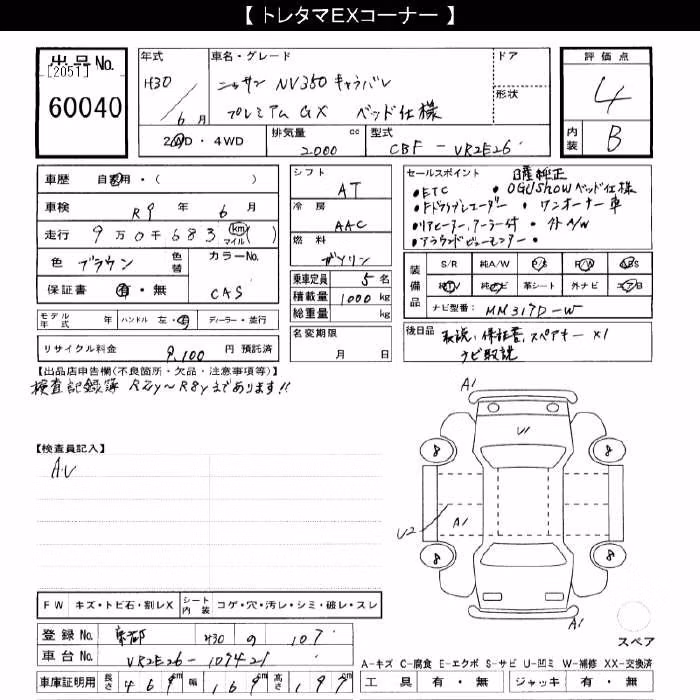 【 トレタマEXコーナー 】
出品No.
[2051]
60040
年式
H30
6月
車名・グレード
ニッサン NV350 キャラバン
プレミアム GX ベッド仕様
ドア
形状
2WD・4WD
排気量 cc
2000
型式
CBF - VR2E26
評価点
4
内装
B
車歴 自家用・( )
車検 R9年 6月
走行 9万0千683 km マイル ( )
色 ブラウン
色替
カラーNo.
CAS
保証書 有・無
モデル年式 年
ハンドル 左・右
ディーラー・並行
リサイクル料金 9,100 円 預託済
シフト
AT
冷房
AAC
燃料
ガソリン
乗車定員 5 名
積載量 1000 kg
総重量 kg
名変期限
月 日
セールスポイント 日産純正
・ETC ・OGUShowベッド仕様
・Fドライブレコーダー ・ワンオーナー車
・リアヒーター、クーラー付 ・外A/W
・アラウンドビューモニター ・
装備品
S/R 純A/W P/S P/W ABS
純TV 純ナビ 革シート 外ナビ エアB
ナビ型番: MM317D-W
後日品 取説、保証書、スペアキー×1
ナビ取説
【出品店申告欄(不良箇所・欠品・注意事項等)】
検査記録簿 R2y～R8yまであります!!
【検査員記入】
AU
A1
U1
8
8
U2
A1
8
8
A1
スペア
FW キズ・トビ石・割レX
シート内装 コゲ・穴・汚レ・シミ・破レ・スレ
登録No. 京都 430 の 107
車台No. VR2E26-107421
車庫証明用 長さ 469 cm 幅 169 cm 高さ 199 cm
A-キズ C-腐食 E-エクボ S-サビ U-凹ミ W-補修 XX-交換済
工具 有・無 ジャッキ 有・無